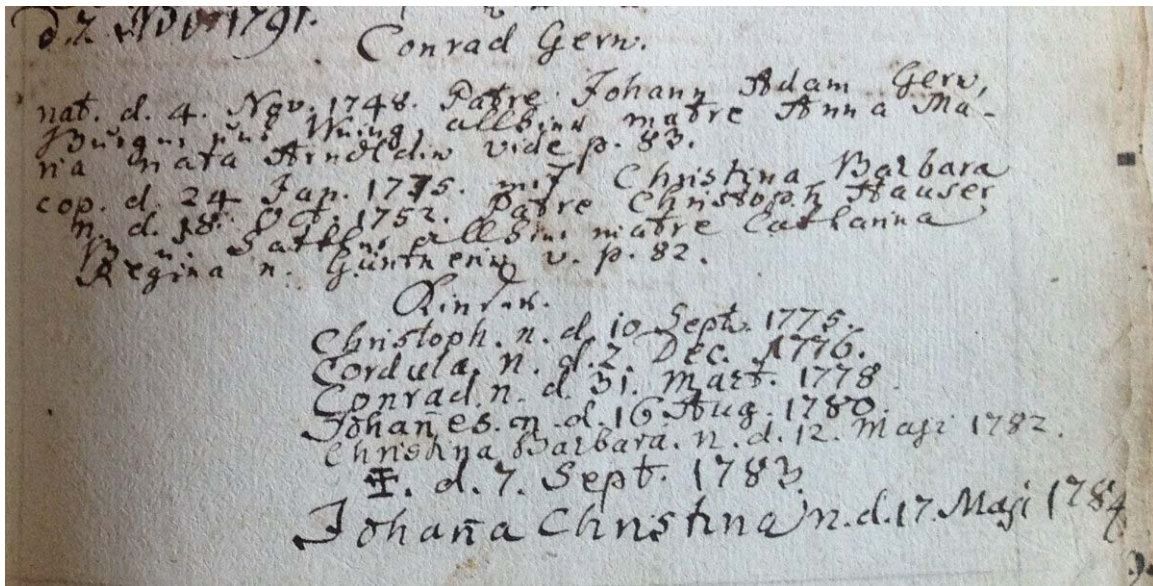 d. 7. Nov. 1791.
Conrad Gern.
nat. d. 4. Nov. 1748. Patre Johann Adam Gern,
Burger und allhier matre Anna Ma-
ria nata Arnoldin vide p. 83.
cop. d. 24 Jan. 1775. mit Christina Barbara
n. d. 18. Oct. 1752. Patre Christoph Hauser
B. u. Sattler allhier matre Catharina
Regina n. Güntnerin v. p. 82.
Kinder.
Christoph. n. d. 10 Sept. 1775.
Cordula. n. d. 2. Dec. 1776.
Conrad. n. d. 31. Mart. 1778
Johañes. n. d. 16. Aug. 1780.
Christina Barbara. n. d. 12. Maji 1782.
d. 7. Sept. 1783.
Johaña Christina n. d. 17. Maji 1784